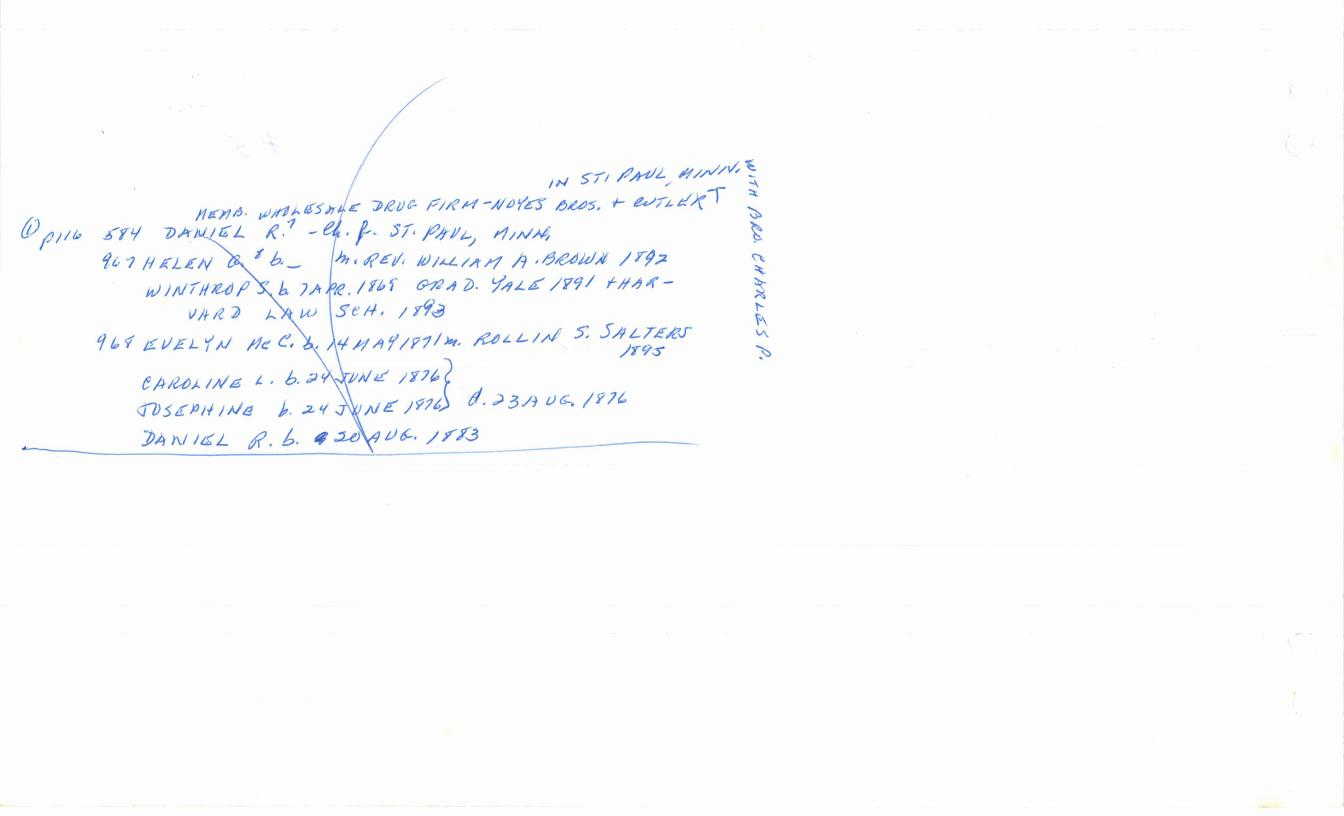 IN ST. PAUL, MINN.
WITH BRO. CHARLES P.
MEMB. WHOLESALE DRUG FIRM-NOYES BROS. + CUTLER
① P116 584 DANIEL R.⁷ - Ch. f. ST. PAUL, MINN.
967 HELEN G.⁸ b. _ m. REV. WILLIAM A. BROWN 1892
WINTHROP S. b. 7 APR. 1868 GRAD. YALE 1891 + HAR-
VARD LAW SCH. 1893
968 EVELYN McC. b. 14 MAY 1871 m. ROLLIN S. SALTERS
1895
CAROLINE L. b. 24 JUNE 1876 }
JOSEPHINE b. 24 JUNE 1876 } d. 23 AUG. 1876
DANIEL R. b. 20 AUG. 1883